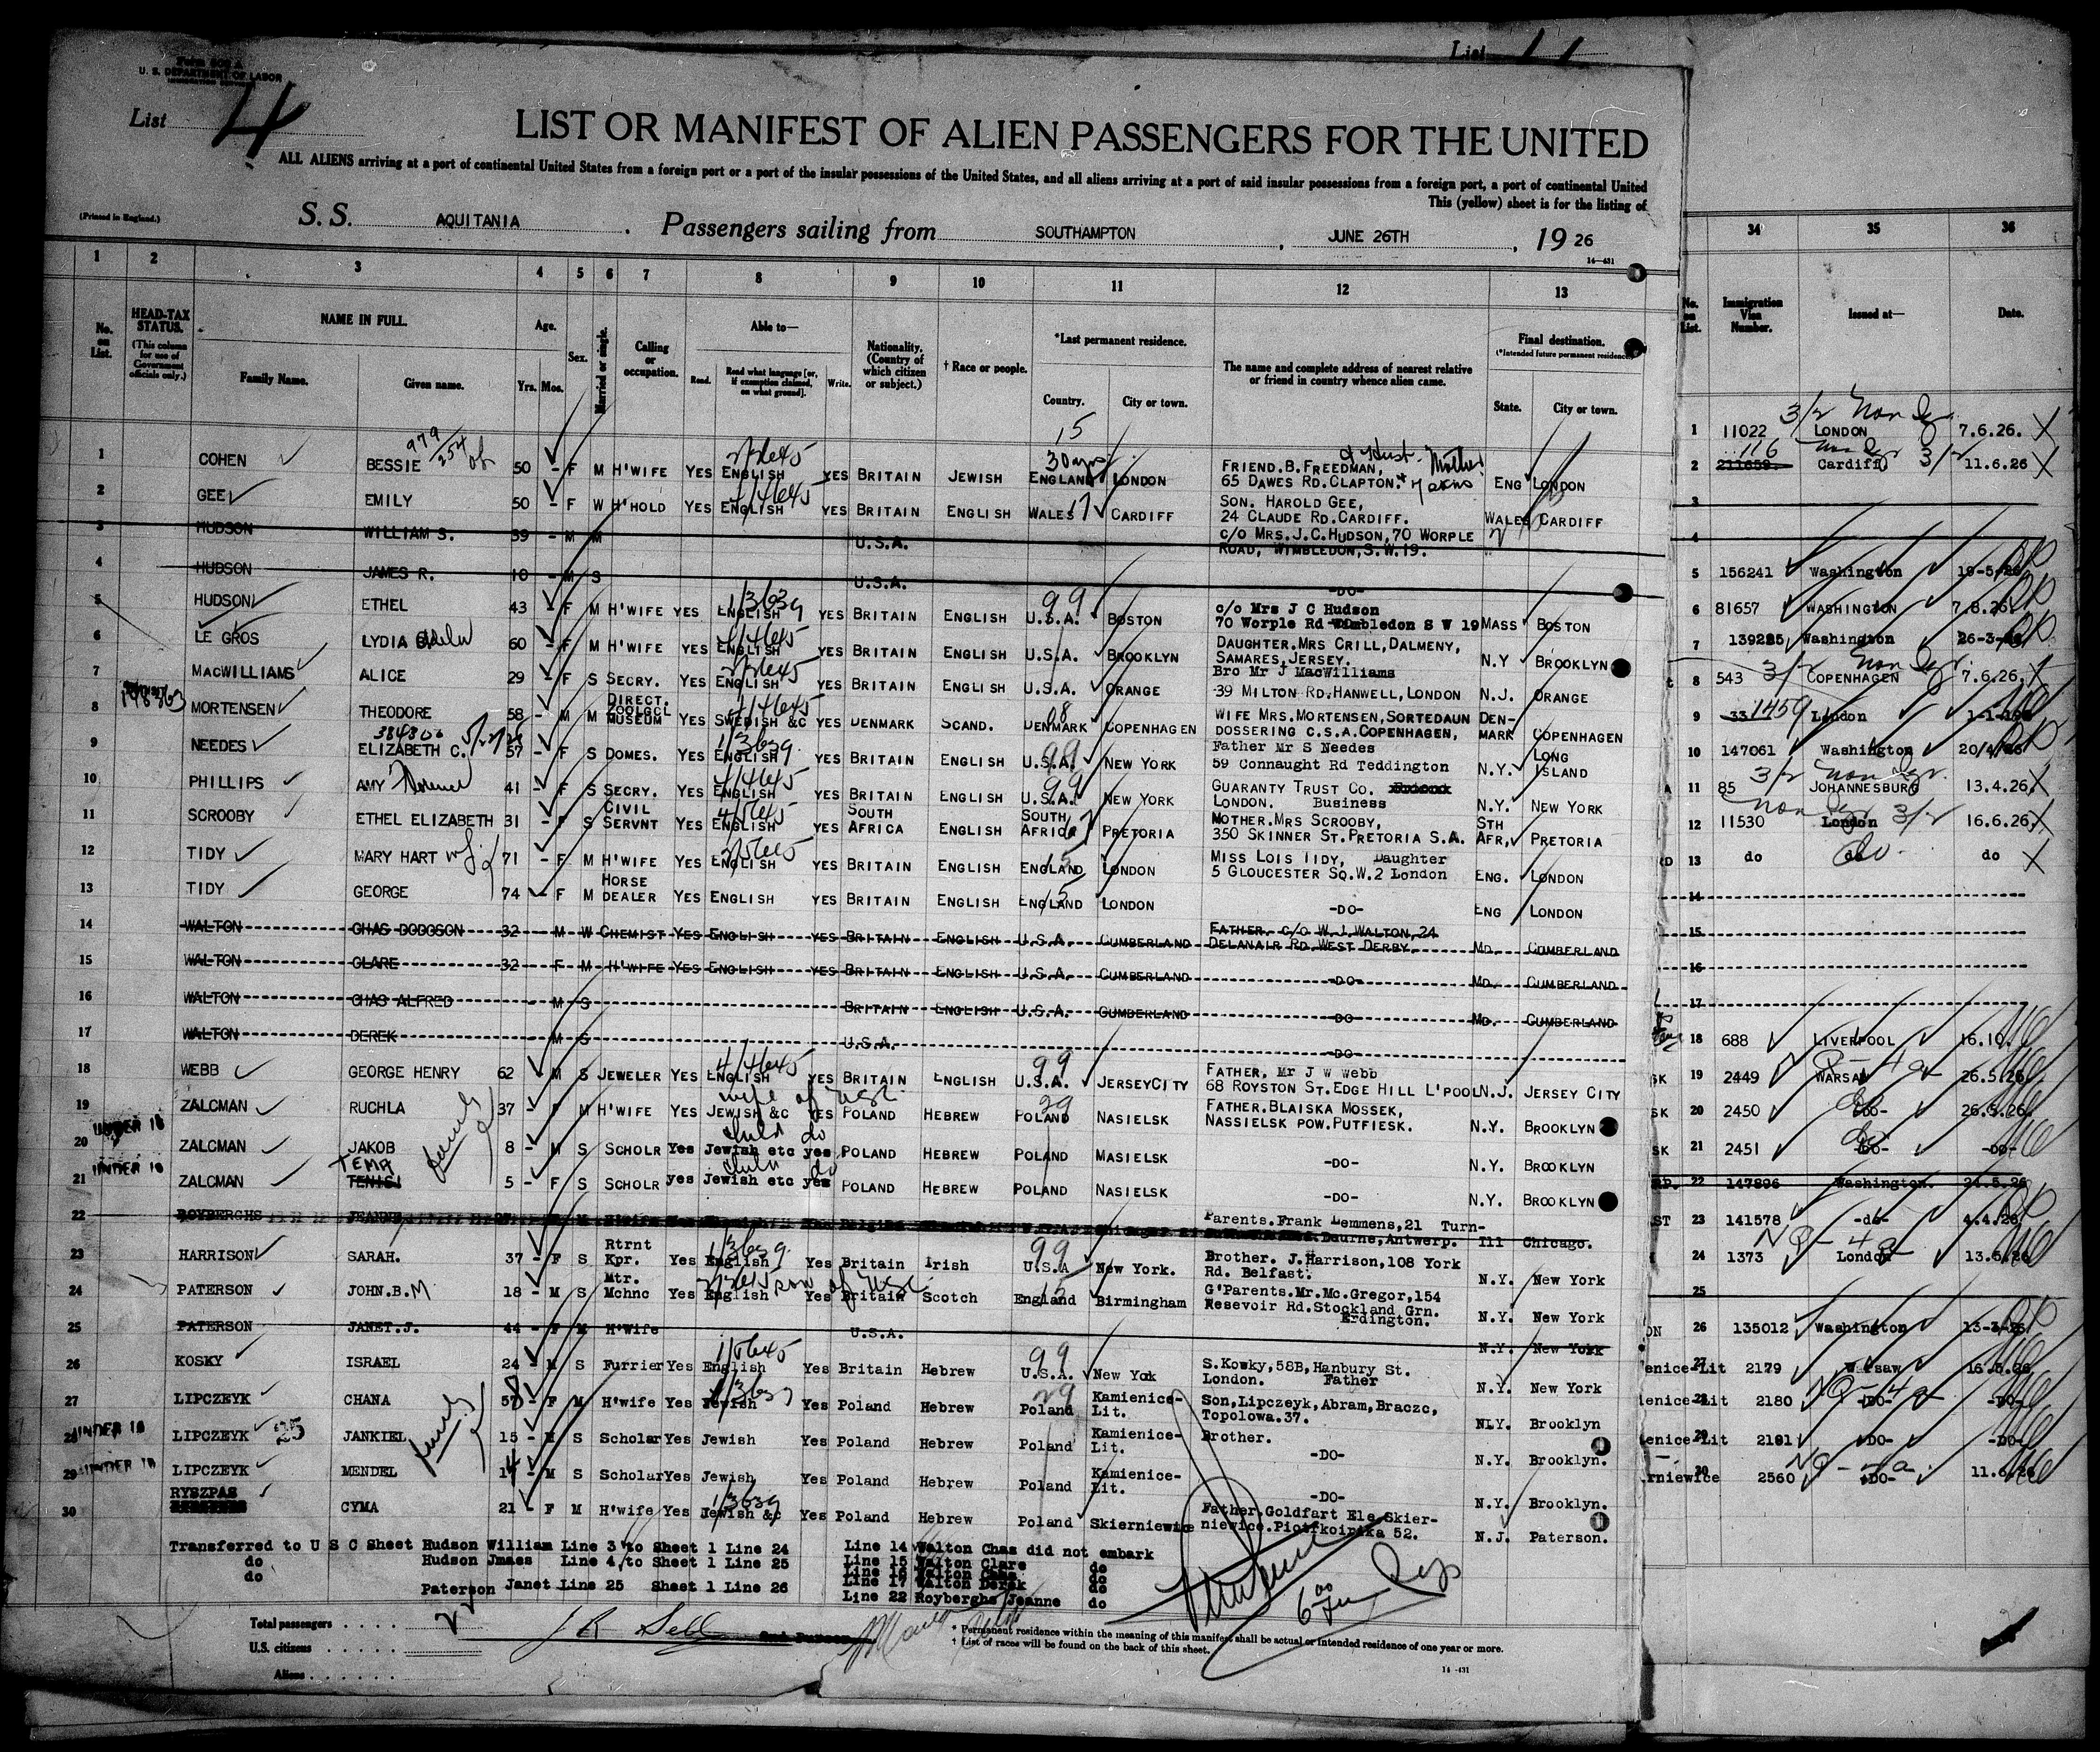 List 11
Form 500 A
U. S. DEPARTMENT OF LABOR
List 4
LIST OR MANIFEST OF ALIEN PASSENGERS FOR THE UNITED
ALL ALIENS arriving at a port of continental United States from a foreign port or a port of the insular possessions of the United States, and all aliens arriving at a port of said insular possessions from a foreign port, a port of continental United
This (yellow) sheet is for the listing of
(Printed in England.)
S. S. AQUITANIA . Passengers sailing from SOUTHAMPTON , JUNE 26TH , 19 26
14-431
1 2 3 4 5 6 7 8 9 10 11 12 13 34 35 36
No. on List. HEAD-TAX STATUS. (This column for use of Government officials only.) NAME IN FULL. Family Name. Given name. Age. Yrs. Mos. Sex. Married or single. Calling or occupation. Able to— Read. Read what language [or, if exemption claimed, on what ground]. Write. Nationality. (Country of which citizen or subject.) † Race or people. *Last permanent residence. Country. City or town. The name and complete address of nearest relative or friend in country whence alien came. Final destination. (*Intended future permanent residence.) State. City or town. No. on List. Immigration Visa Number. Issued at— Date.
1 COHEN BESSIE 50 - F M H'WIFE YES ENGLISH YES BRITAIN JEWISH ENGLAND LONDON FRIEND.B.FREEDMAN, 65 DAWES RD.CLAPTON. ENG LONDON
2 GEE EMILY 50 - F W H'HOLD YES ENGLISH YES BRITAIN ENGLISH WALES CARDIFF SON. HAROLD GEE, 24 CLAUDE RD.CARDIFF. WALES CARDIFF
3 HUDSON WILLIAM S. 39 - M M U.S.A. C/O MRS.J.C.HUDSON,70 WORPLE ROAD, WIMBLEDON,S.W.19.
4 HUDSON JAMES R. 10 - M S U.S.A. -DO-
5 HUDSON ETHEL 43 - F M H'WIFE YES ENGLISH YES BRITAIN ENGLISH U.S.A. BOSTON c/o Mrs J C Hudson 70 Worple Rd Wimbledon S W 19 MASS BOSTON
6 LE GROS LYDIA 60 - F M H'WIFE YES ENGLISH YES BRITAIN ENGLISH U.S.A. BROOKLYN DAUGHTER.MRS CRILL,DALMENY, SAMARES,JERSEY. N.Y BROOKLYN
7 MACWILLIAMS ALICE 29 - F S SECRY. YES ENGLISH YES BRITAIN ENGLISH U.S.A. ORANGE Bro Mr J MacWilliams 39 MILTON RD.HANWELL, LONDON N.J. ORANGE
8 MORTENSEN THEODORE 58 - M M DIRECT. ZOOLGCL MUSEUM YES SWEDISH &C YES DENMARK SCAND. DENMARK COPENHAGEN WIFE MRS.MORTENSEN,SORTEDAUN DOSSERING C.S.A.COPENHAGEN, DEN-MARK COPENHAGEN
9 NEEDES ELIZABETH C. 57 - F S DOMES. YES ENGLISH YES BRITAIN ENGLISH U.S.A. NEW YORK Father Mr S Needes 59 Connaught Rd Teddington N.Y. LONG ISLAND
10 PHILLIPS AMY 41 - F S SECRY. YES ENGLISH YES BRITAIN ENGLISH U.S.A. NEW YORK GUARANTY TRUST CO. LONDON. Business N.Y. NEW YORK
11 SCROOBY ETHEL ELIZABETH 31 - F S CIVIL SERVNT YES ENGLISH YES SOUTH AFRICA ENGLISH SOUTH AFRICA PRETORIA MOTHER.MRS SCROOBY, 350 SKINNER ST.PRETORIA S.A. STH AFR, PRETORIA
12 TIDY MARY HART 71 - F M H'WIFE YES ENGLISH YES BRITAIN ENGLISH ENGLAND LONDON MISS LOIS TIDY, Daughter 5 GLOUCESTER SQ.W.2 London ENG. LONDON
13 TIDY GEORGE 74 - F M HORSE DEALER YES ENGLISH YES BRITAIN ENGLISH ENGLAND LONDON -DO- ENG LONDON
14 WALTON CHAS DODGSON 32 - M W CHEMIST YES ENGLISH YES BRITAIN ENGLISH U.S.A. CUMBERLAND FATHER. C/O W.J.WALTON,24 DELANAIR RD.WEST DERBY. MD. CUMBERLAND
15 WALTON CLARE 32 - F M H'WIFE YES ENGLISH YES BRITAIN ENGLISH U.S.A. CUMBERLAND -DO- MD. CUMBERLAND
16 WALTON CHAS ALFRED - M S BRITAIN ENGLISH U.S.A. CUMBERLAND -DO- MD. CUMBERLAND
17 WALTON DEREK - M S U.S.A. -DO-
18 WEBB GEORGE HENRY 62 M S JEWELER YES ENGLISH YES BRITAIN ENGLISH U.S.A. JERSEYCITY FATHER, Mr J W Webb 68 ROYSTON ST.EDGE HILL L'POOL N.J. JERSEY CITY
19 ZALCMAN RUCHLA 37 - F M H'WIFE YES JEWISH &C YES POLAND HEBREW POLAND NASIELSK FATHER.BLAISKA MOSSEK, NASSIELSK POW.PUTFIESK. N.Y. BROOKLYN
UNDER 16
20 ZALCMAN JAKOB 8 - M S SCHOLR Yes Jewish etc yes POLAND HEBREW POLAND MASIELSK -DO- N.Y. BROOKLYN
UNDER 16
21 ZALCMAN TEMA 5 - F S SCHOLR yes Jewish etc yes POLAND HEBREW POLAND NASIELSK -DO- N.Y. BROOKLYN
22 ROYBERGHS JEANNE Parents.Frank Lemmens,21 Turn- Deurne,Antwerp. Ill Chicago.
23 HARRISON SARAH. 37 - F S Rtrnt Kpr. Yes English Yes Britain Irish U.S.A New York. Brother. J.Harrison,108 York Rd. Belfast. N.Y. New York
24 PATERSON JOHN.B.M 18 - M S Mtr. Mchnc Yes English Yes Britain Scotch England Birmingham G'Parents.Mr.Mc.Gregor,154 Resevoir Rd.Stockland Grn. Erdington. N.Y. New York
25 PATERSON JANET.J. 44 - F M H'Wife U.S.A. N.Y. New York
26 KOSKY ISRAEL 24 - M S Furrier Yes English Yes Britain Hebrew U.S.A. New Yok S.Kowky,58B,Hanbury St. London. Father N.Y. New York
27 LIPCZEYK CHANA 57 - F M H'wife Yes Jewish Yes Poland Hebrew Poland Kamienice-Lit. Son,Lipczeyk,Abram,Braczc, Topolowa.37. NLY. Brooklyn
UNDER 16
28 LIPCZEYK JANKIEL 15 - M S Scholar Yes Jewish Yes Poland Hebrew Poland Kamienice-Lit. Brother. -DO- N.Y. Brooklyn.
UNDER 16
29 LIPCZEYK MENDEL 14 - M S Scholar Yes Jewish Yes Poland Hebrew Poland Kamienice-Lit. -DO- N.Y. Brooklyn.
30 RYSZPAS CYMA 21 - F M H'wife Yes Jewish &c Yes Poland Hebrew Poland Skierniewice Father.Goldfart Ele.Skier-niewice.Piotfkoirska 52. N.J. Paterson.
Transferred to U S C Sheet Hudson William Line 3 to Sheet 1 Line 24 Line 14 Walton Chas did not embark
do Hudson Jmaes Line 4, to Sheet 1 Line 25 Line 15 Walton Clare do
Line 16 Walton Chas do
do Paterson Janet Line 25 Sheet 1 Line 26 Line 17 Walton Derek do
Line 22 Royberghs Jeanne do
Total passengers
U.S. citizens
Aliens
* Permanent residence within the meaning of this manifest shall be actual or intended residence of one year or more.
† List of races will be found on the back of this sheet.
14-431
1 11022 LONDON 7.6.26.
2 116 Cardiff 11.6.26
3
4
5 156241 Washington 19-5-26
6 81657 WASHINGTON 7.8.26
7 139225 Washington 26-3-26
8 543 COPENHAGEN 7.6.26.
9 1459 London
10 147061 Washington 20/4/26
11 85 JOHANNESBURG 13.4.26
12 11530 London 16.6.26
13 do do do
14
15
16
17
18 688 LIVERPOOL 16.10.
19 2449 WARSAW 26.5.26.
20 2450 -DO- 26.5.26.
21 2451 -DO- -DO-
22 147896 Washington. 24.5.26
23 141578 -do- 4.4.26
24 1373 London 13.5.26
25
26 135012 Washington 13-3-26
27 2179 Warsaw 16.5.26
28 2180 -DO- -DO-
29 2181 -DO- -DO-
30 2560 -DO- 11.6.26